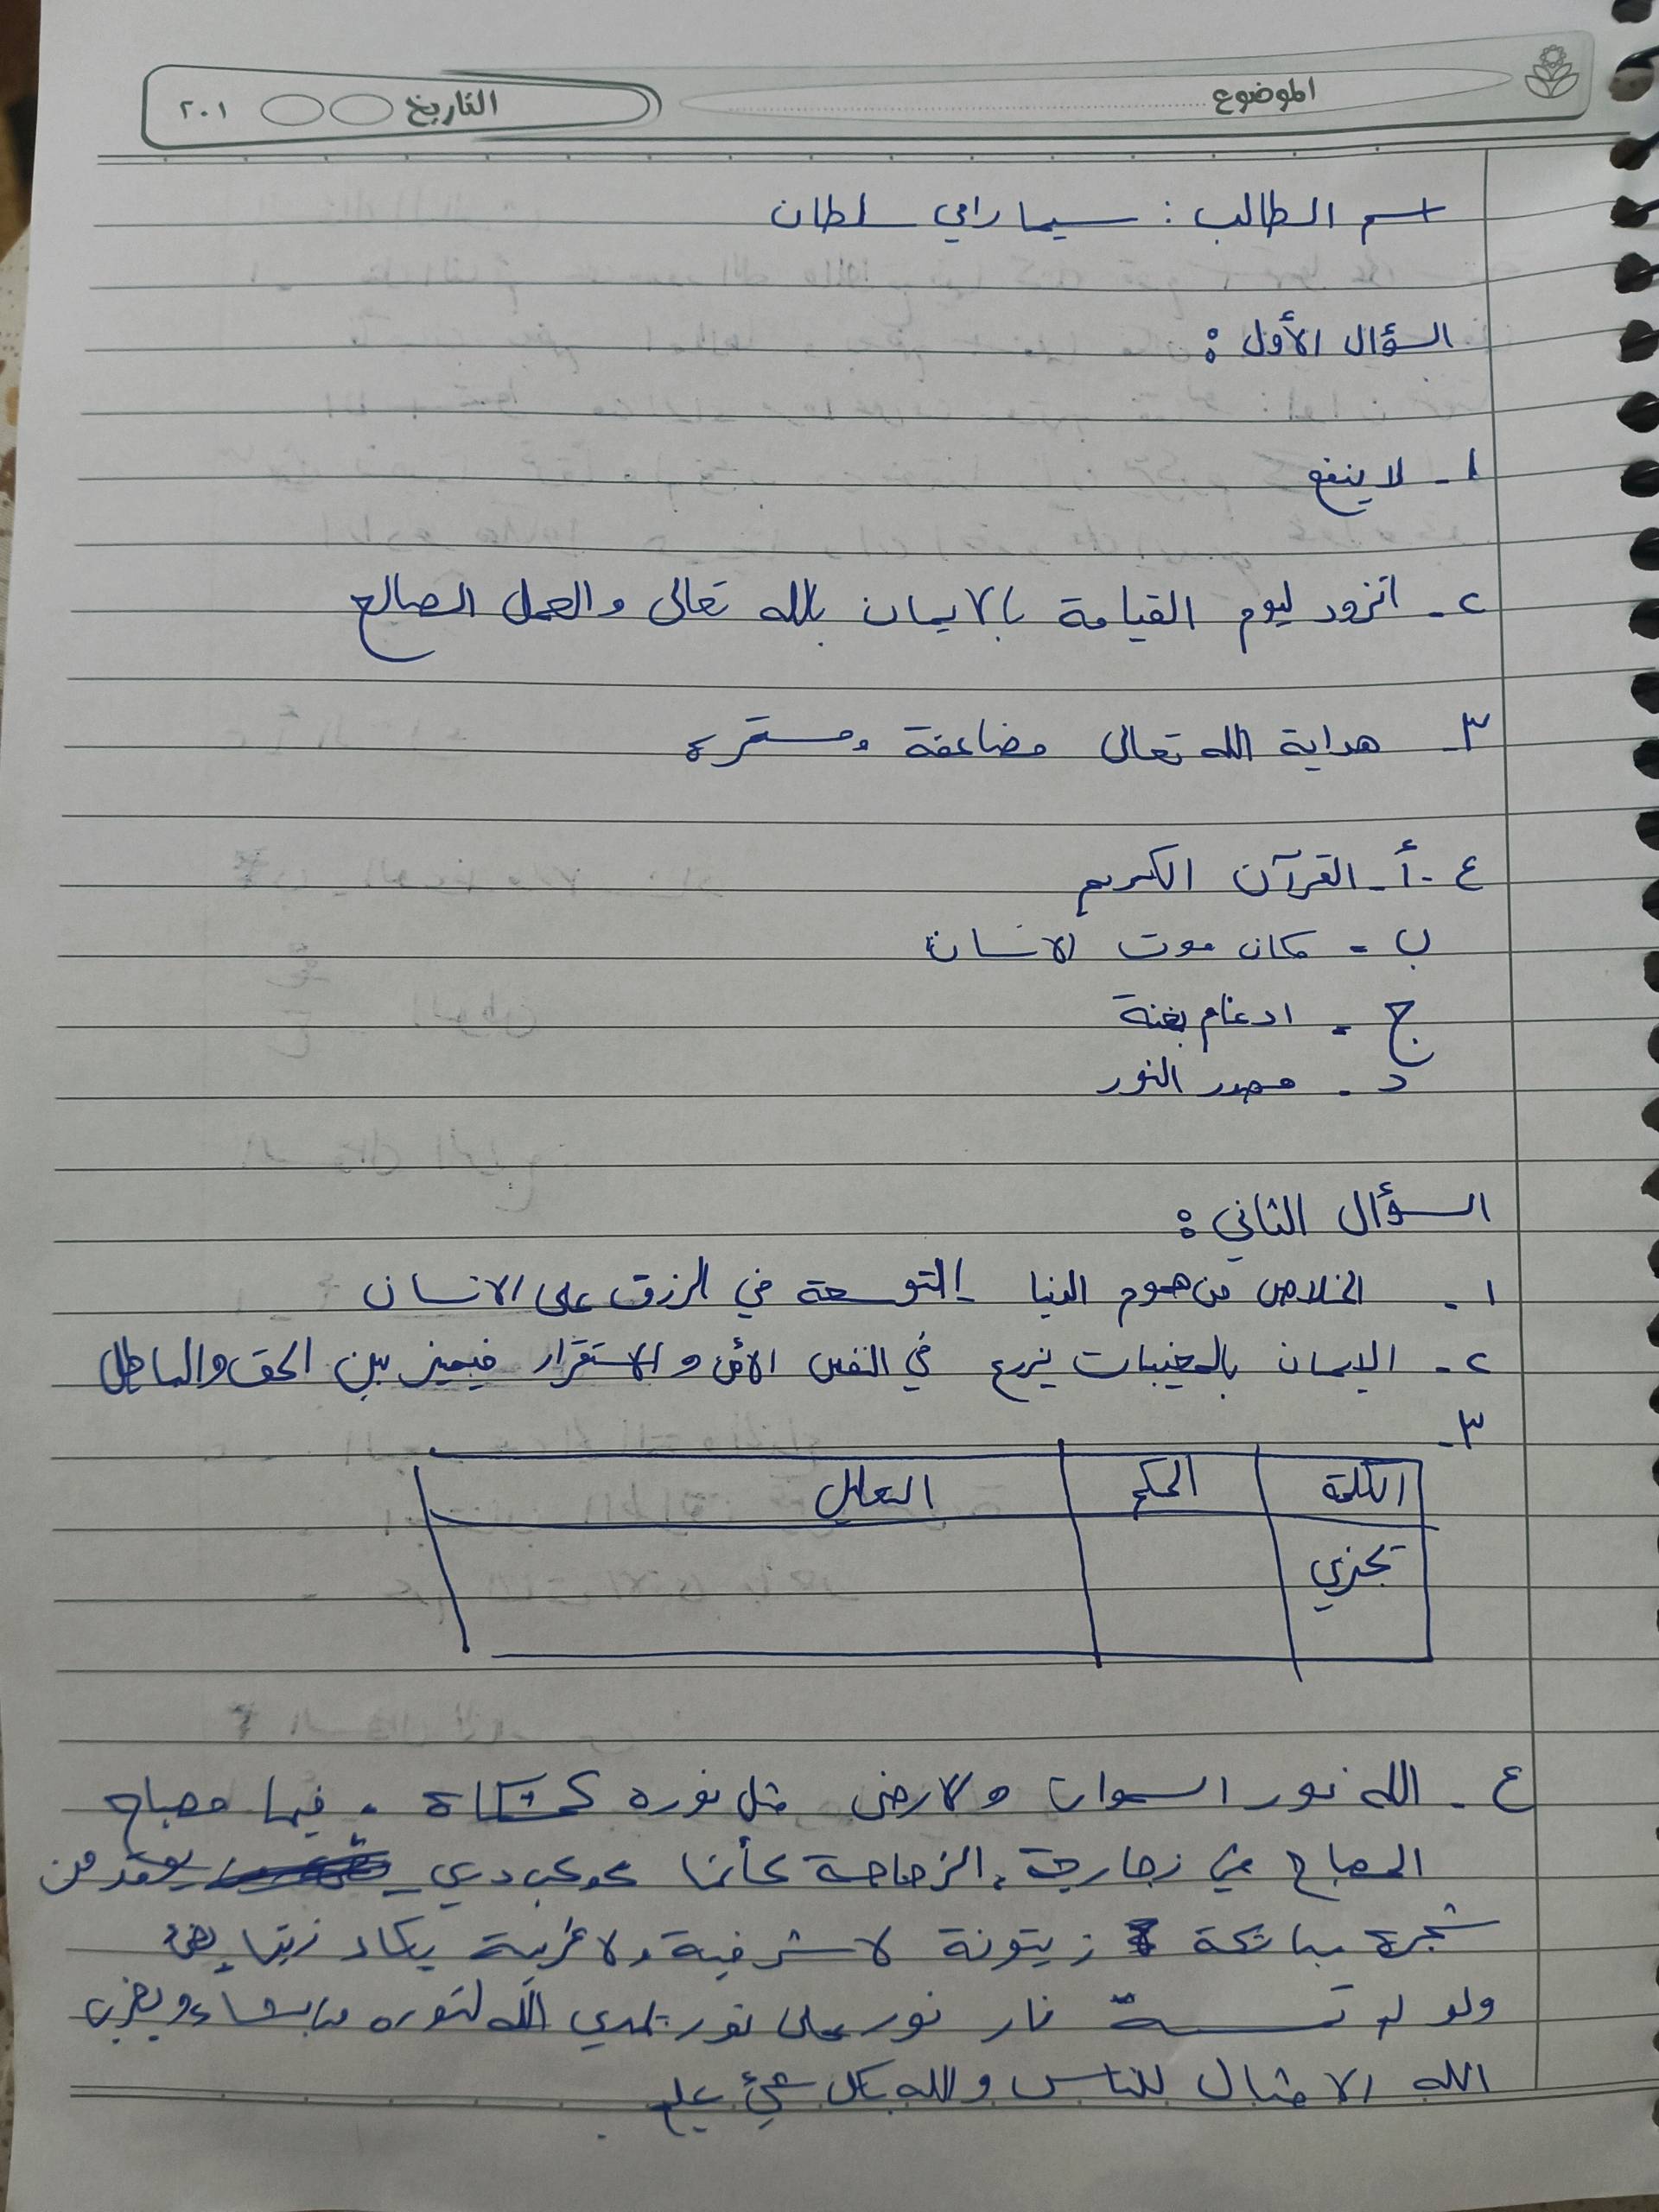 الموضوع
التاريخ ٢٠١
اسم الطالب : سيما رامي سلطان
السؤال الأول :
١- لا ينفع
٢- اتزود ليوم القيامة بالايمان بالله تعالى والعمل الصالح
٣- هداية الله تعالى مضاعفة ومستمرة
٤- أ- القرآن الكريم
ب - مكان موت الانسان
ج - ادغام بغنة
د - مصدر النور
السؤال الثاني :
١- الخلاص من هموم الدنيا - التوسعة في الرزق على الانسان
٢- الايمان بالمغيبات يزرع في النفس الأمن والاستقرار فيميز بين الحق والباطل
٣-
الكلمة الحكم التعليل
تجزي
٤- الله نور السموات والارض مثل نوره كمشكاة . فيها مصباح
المصباح في زجاجة . الزجاجة كأنها كوكب دري يوقد من
شجرة مباركة زيتونة لا شرقية ولا غربية يكاد زيتها يضئ
ولو لم تمسسه نار نور على نور يهدي الله لنوره من يشاء ويضرب
الله الامثال للناس والله بكل شيء عليم